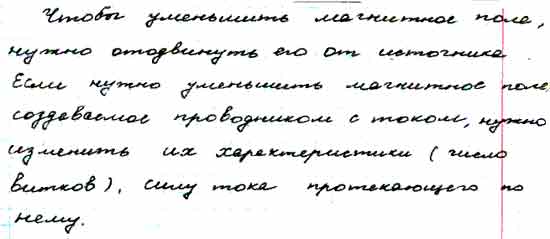 Чтобы уменьшить магнитное поле,
нужно отодвинуть его от источника
Если нужно уменьшить магнитное поле
создаваемое проводником с током, нужно
изменить их характеристики (число
витков), силу тока протекающего по
нему.